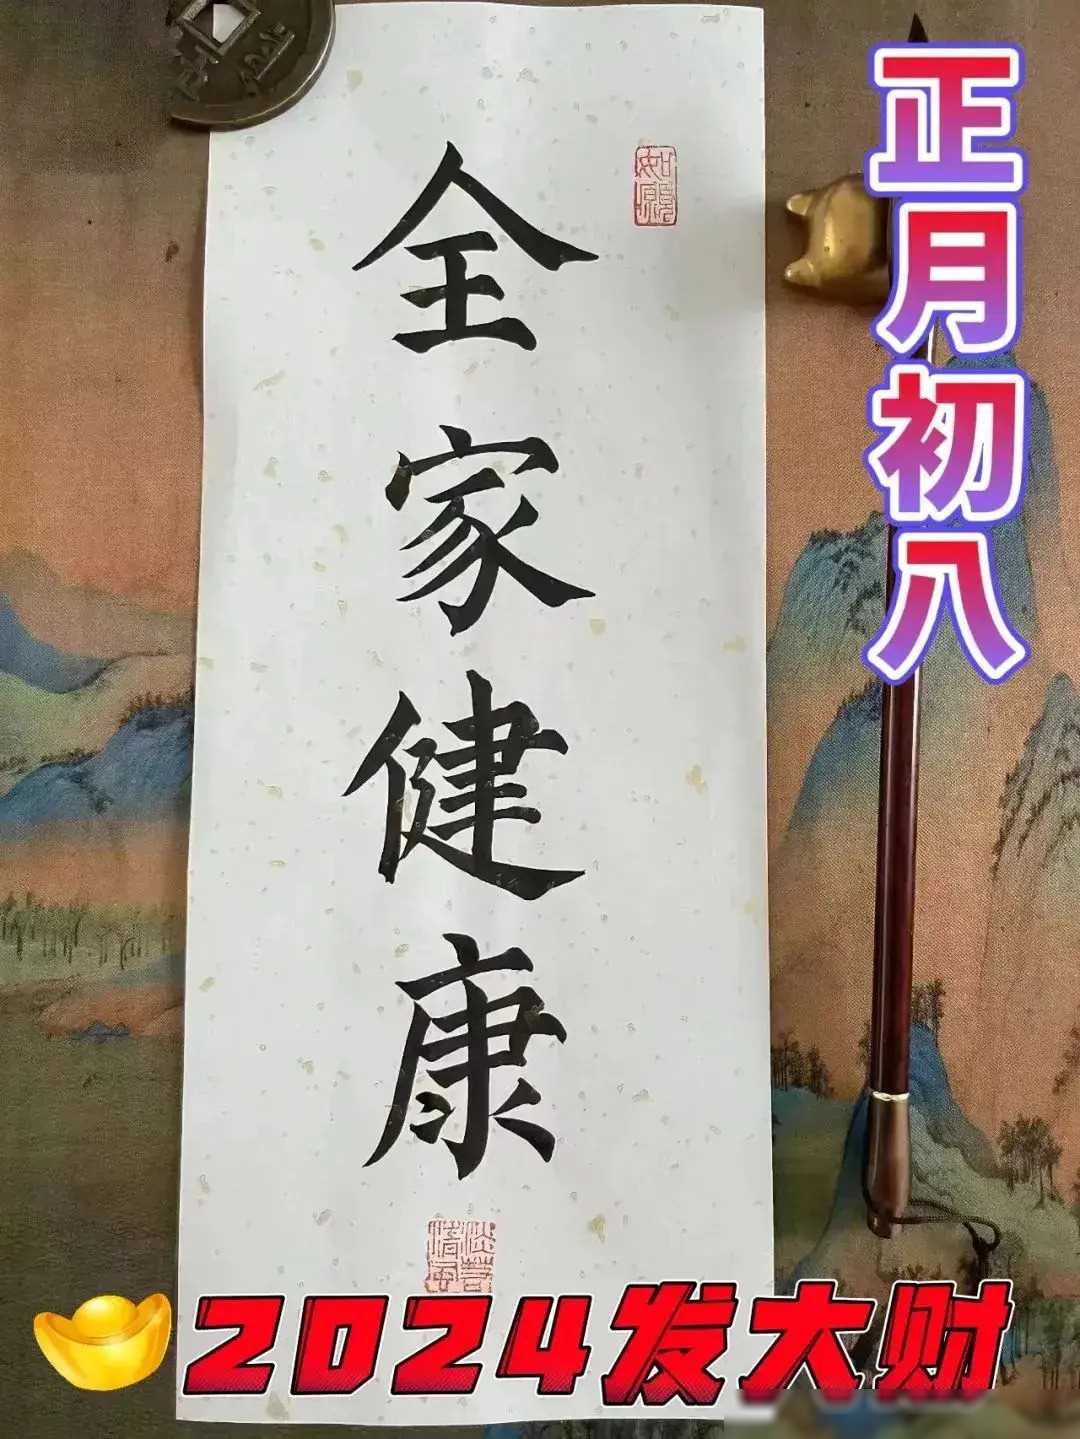 正月初八
全家健康
如愿
2024发大财